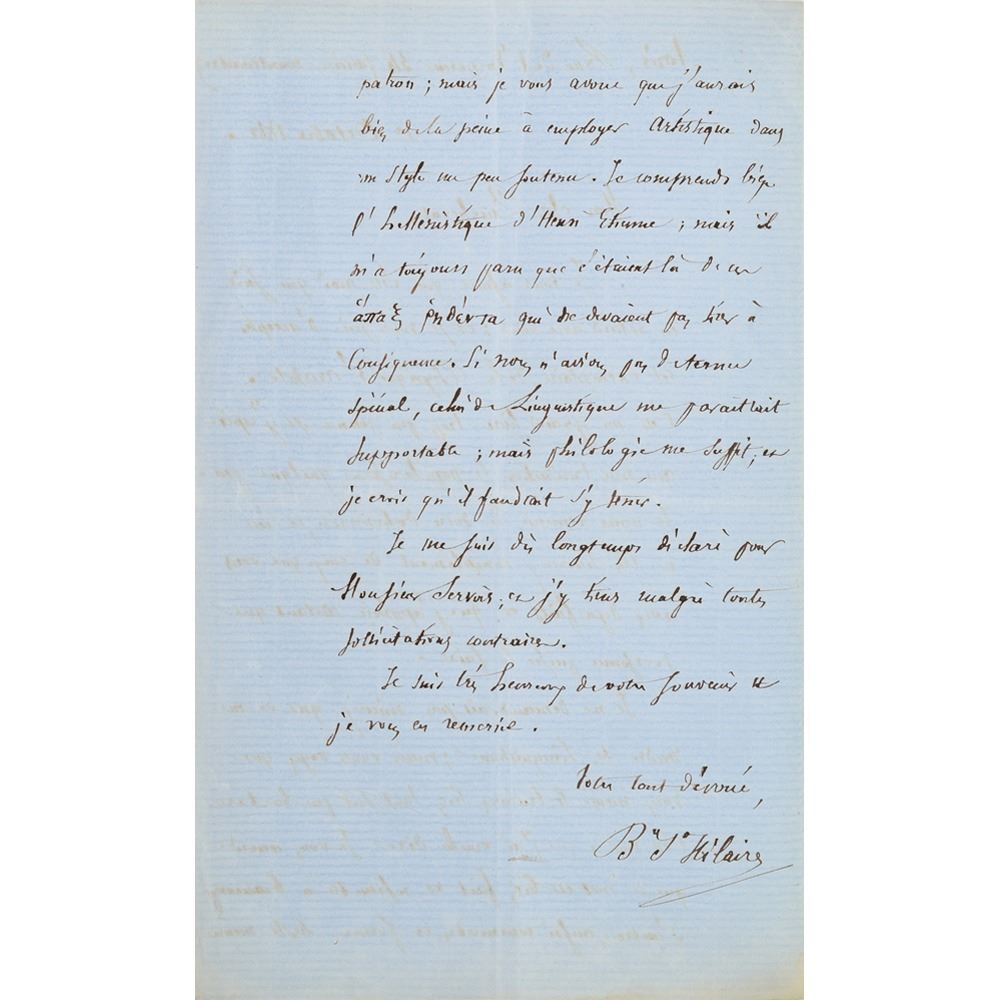 patron ; mais je vous avoue que j'aurais
bien de la peine à employer Artistique dans
un style un peu soutenu. Je comprends bien
l'hellénistique d'Henri Etienne ; mais il
m'a toujours paru que c'étaient là de ces
ἅπαξ ῥηθέντα qui ne devaient pas tirer à
Conséquence. Si nous n'avions pas de terme
spécial, celui de Linguistique me paraîtrait
supportable ; mais philologie me suffit, et
je crois qu'il faudrait s'y tenir.
Je me suis dès longtemps déclaré pour
Monsieur Servois, et j'y tiens malgré toutes
sollicitations contraires.
Je suis très heureux de votre souvenir et
je vous en remercie.
Votre tout dévoué,
Bᵐʸ Sᵗ Hilaire